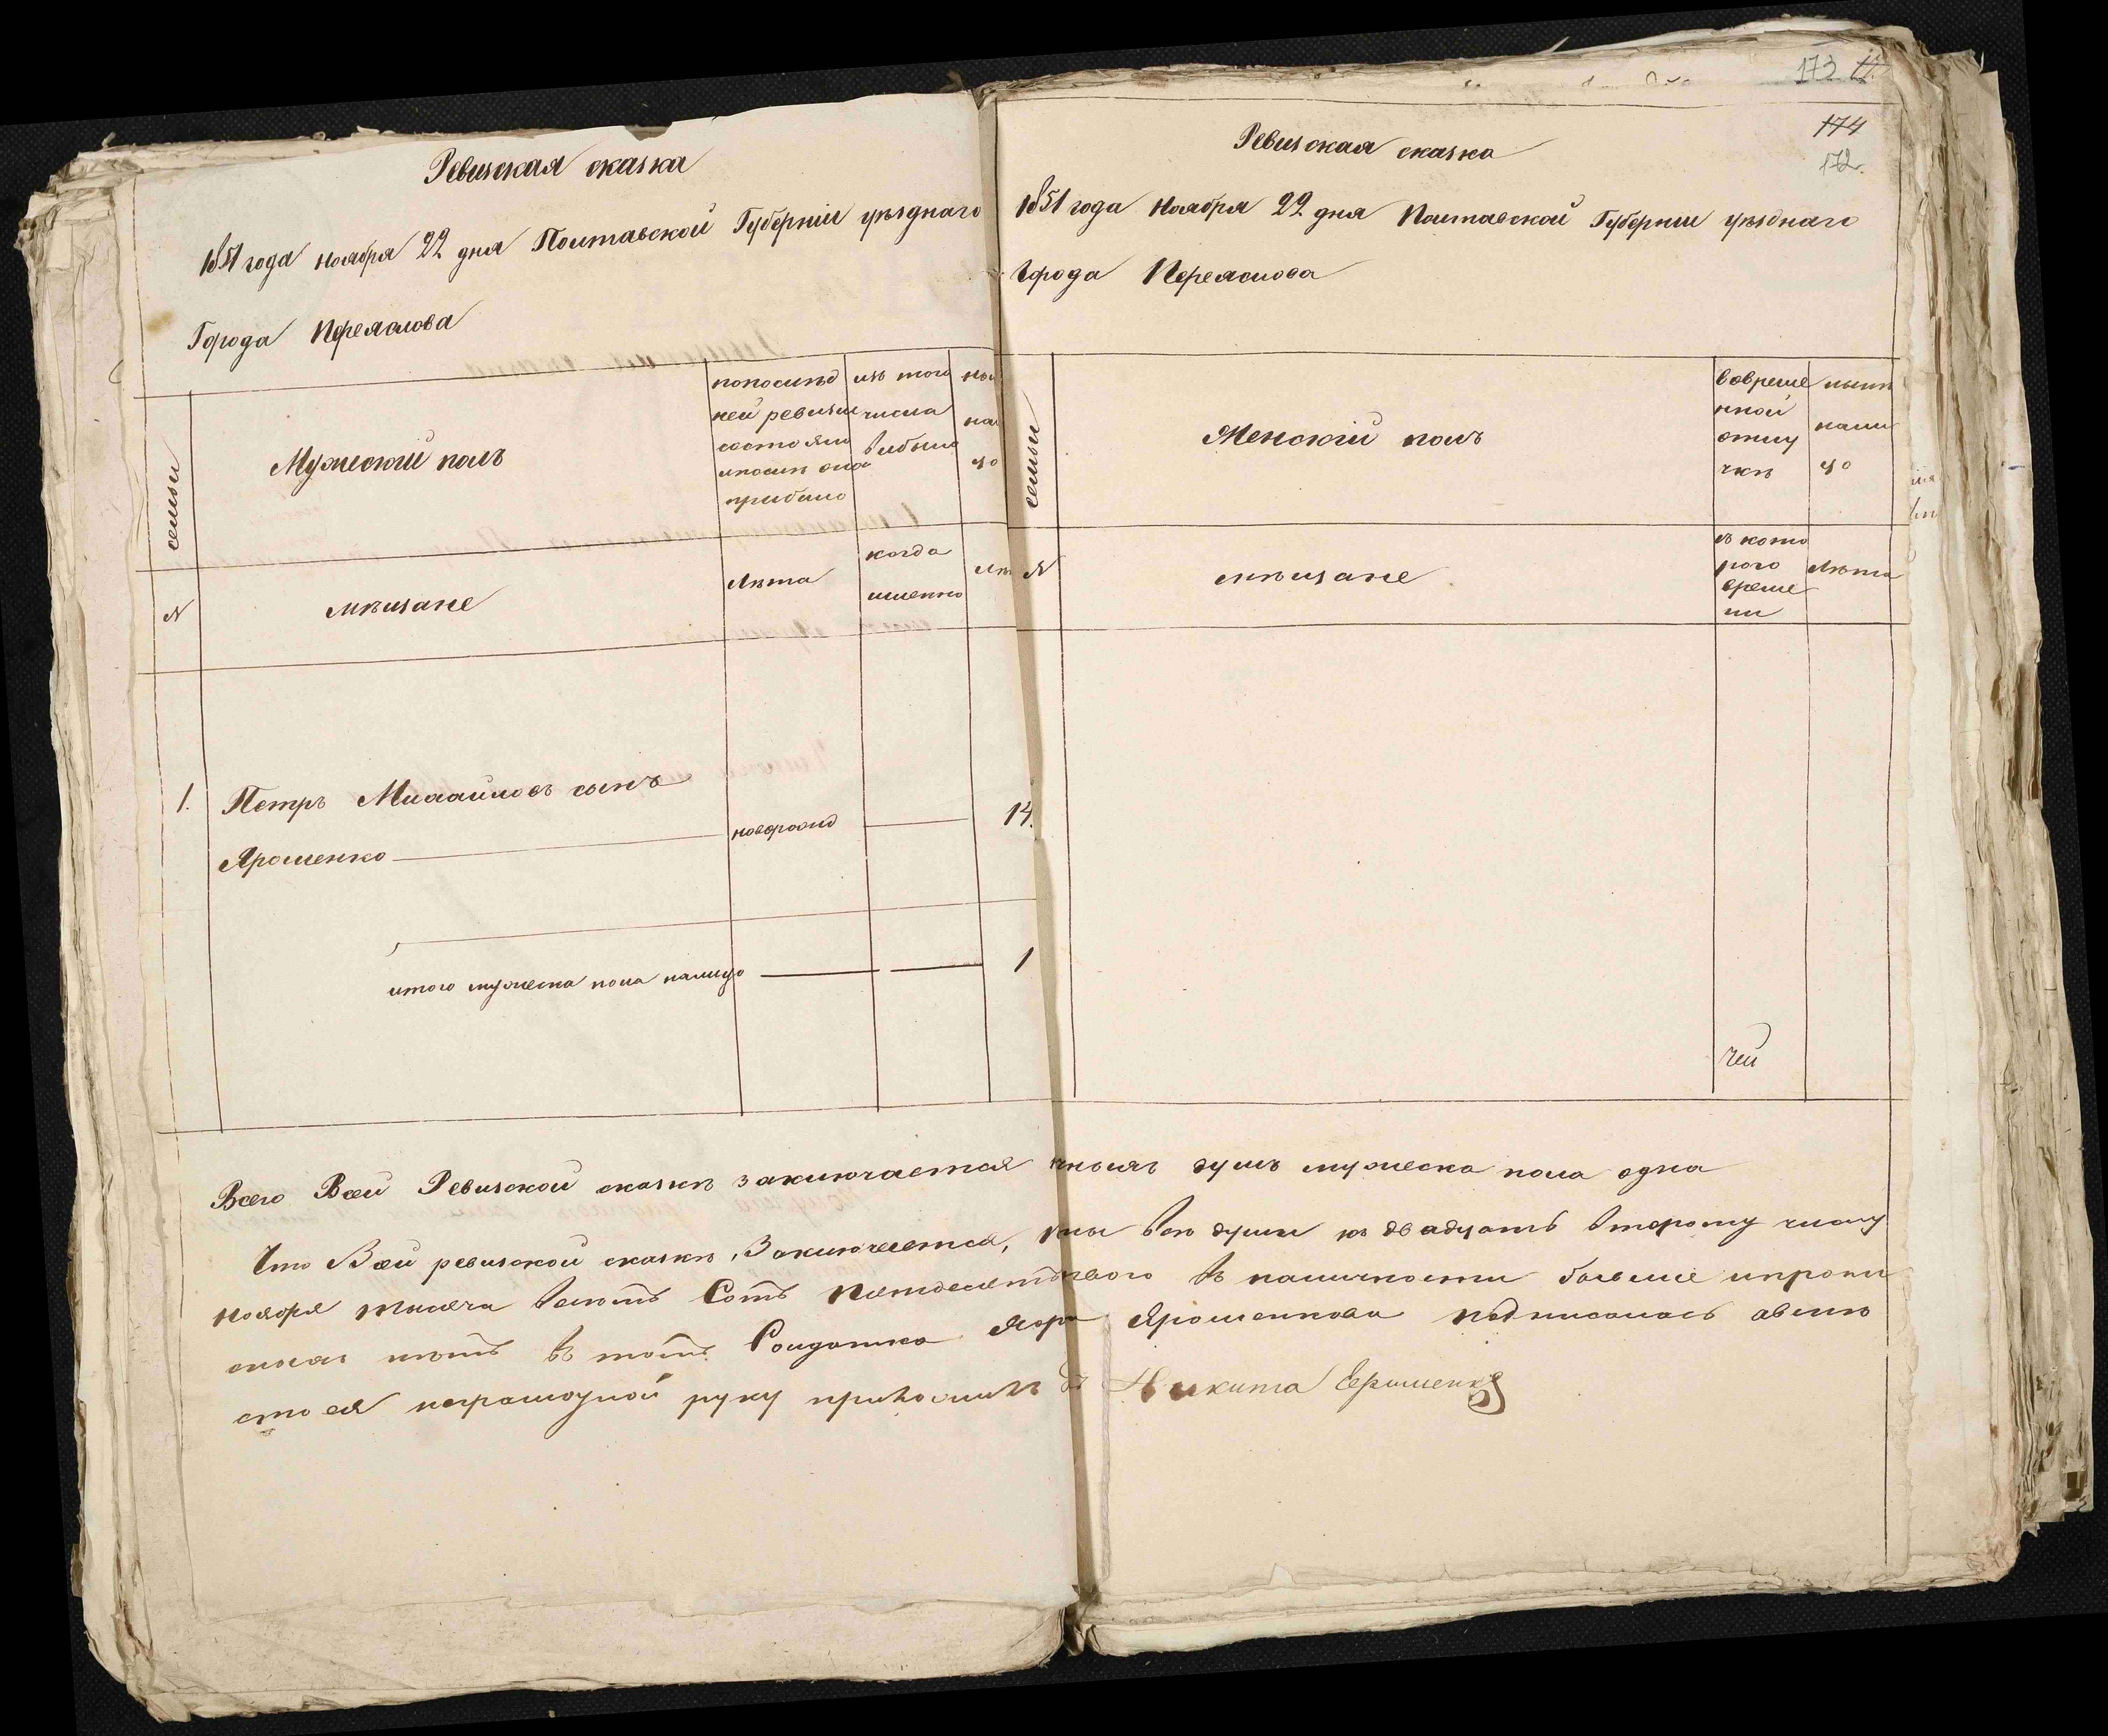 Ревизская сказка
1851 года ноября 22 дня Полтавской Губернiи уѣзднаго
Города Переяслова
семьи
Мужескiй полъ
попослѣд
ней ревизiи
состояло
ипослѣ она
прибыло
изъ того
числа
выбыло
ны
на
цо
№
мѣщане
лѣта
когда
именно
лѣ
1. Петръ Михайловъ сынъ
Ярошенко новорожд 14.
итого мужеска пола налицо 1
173
174
172.
Ревизская сказка
1851 года Ноября 22 дня Полтавской Губернiи уѣзднаго
Города Переяслова
семьи
Женскiй полъ
вовреме
нной
отлу
чкѣ
нынѣ
нали
цо
№
мѣщане
съ кото
рого
време
ни
лѣта
чей
Всего Всей Ревизской сказкѣ заключается душъ мужеска пола одна
Что Всей ревизской сказкѣ, Заключается, всѣ души къ двадцать второму числу
ноября тысяча восемъ Сотъ Пятдесятъ первого въ наличности больше ипропи
сныхъ нѣтъ въ томъ Солдатка Ярошенкова подписалась авмѣ
сто ея неграмотной руку приложилъ Никита Ерошенко